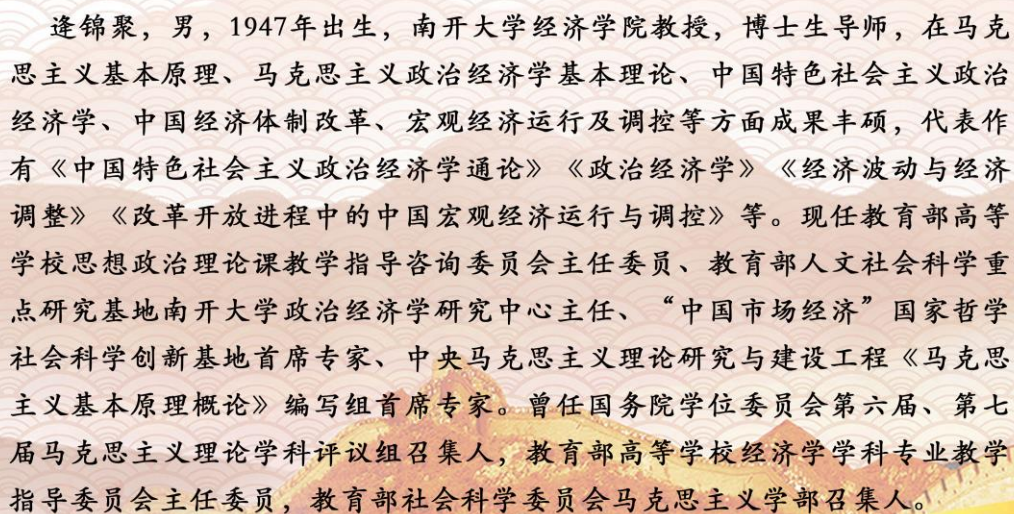 逄锦聚，男，1947年出生，南开大学经济学院教授，博士生导师，在马克
思主义基本原理、马克思主义政治经济学基本理论、中国特色社会主义政治
经济学、中国经济体制改革、宏观经济运行及调控等方面成果丰硕，代表作
有《中国特色社会主义政治经济学通论》《政治经济学》《经济波动与经济
调整》《改革开放进程中的中国宏观经济运行与调控》等。现任教育部高等
学校思想政治理论课教学指导咨询委员会主任委员、教育部人文社会科学重
点研究基地南开大学政治经济学研究中心主任、“中国市场经济”国家哲学
社会科学创新基地首席专家、中央马克思主义理论研究与建设工程《马克思
主义基本原理概论》编写组首席专家。曾任国务院学位委员会第六届、第七
届马克思主义理论学科评议组召集人，教育部高等学校经济学学科专业教学
指导委员会主任委员，教育部社会科学委员会马克思主义学部召集人。